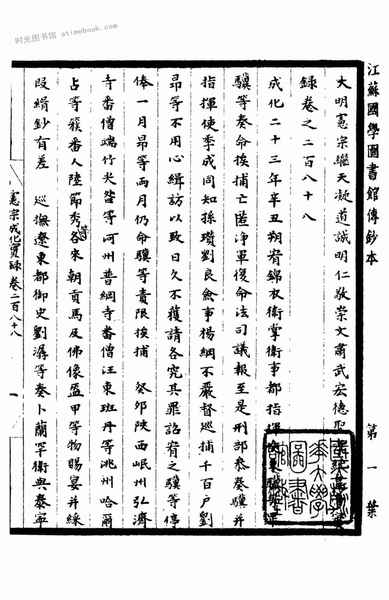 时光图书馆 atimebook.com
江蘇國學圖書館傳鈔本
第一葉
大明憲宗繼天凝道誠明仁敬崇文肅武宏德聖
錄卷之二百八十八
成化二十三年
辛丑朔宥錦衣衛掌衛事都指揮
驥等奏命挨捕亡匿淨軍復命法司議報至是刑部恭奏驥并
指揮使季成同知孫瓚劉良僉事楊綱不嚴督巡捕千百戶劉
昂等不用心緝訪以致日久不獲請各究其罪詔宥之驥等停
俸一月昂等兩月仍命驥等責限挨捕 癸卯陝西岷州弘濟
寺番僧端竹尖昝等河州普綱寺番僧汪東班丹等洮州哈爾
占等簇番人陸節秀等各來朝貢馬及佛像盔甲等物賜宴并綵
段絹鈔有差 巡撫遼東都御史劉潺等奏卜蘭罕衛與泰寧
憲宗成化實錄卷二百八十八
一